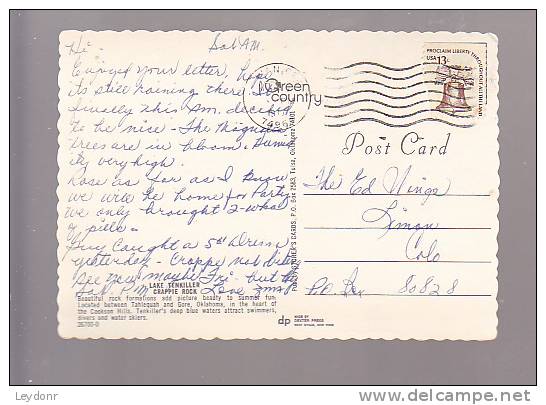 Sat AM.
Hi -
Enjoyed your letter, hope
its still raining there. It
finally this Am. decided
to be nice - The
trees are in bloom. Humid
ity very high.
Rose as far as I know
we write home for Party
we only brought 2-
pills -
Guy Caught a 5#
yesterday - Crappie not biting
See you maybe Fri - but
Love
LAKE TENKILLER
CRAPPIE ROCK
Beautiful rock formations add picture beauty to summer fun.
Located between Tahlequah and Gore, Oklahoma, in the heart of
the Cookson Hills. Tenkiller's deep blue waters attract swimmers,
divers and water skiers.
26700-D
Green
country
PROCLAIM LIBERTY THROUGHOUT ALL THE LAND
USA 13c
Post Card
CARDS, P.O. Box 2583, Tulsa, Oklahoma 74101
The Ed Wings
Limon
Colo
P.O. Box 80828
dp
MADE BY
DEXTER PRESS
WEST NYACK, NEW YORK
Leydonr
delcampe.net